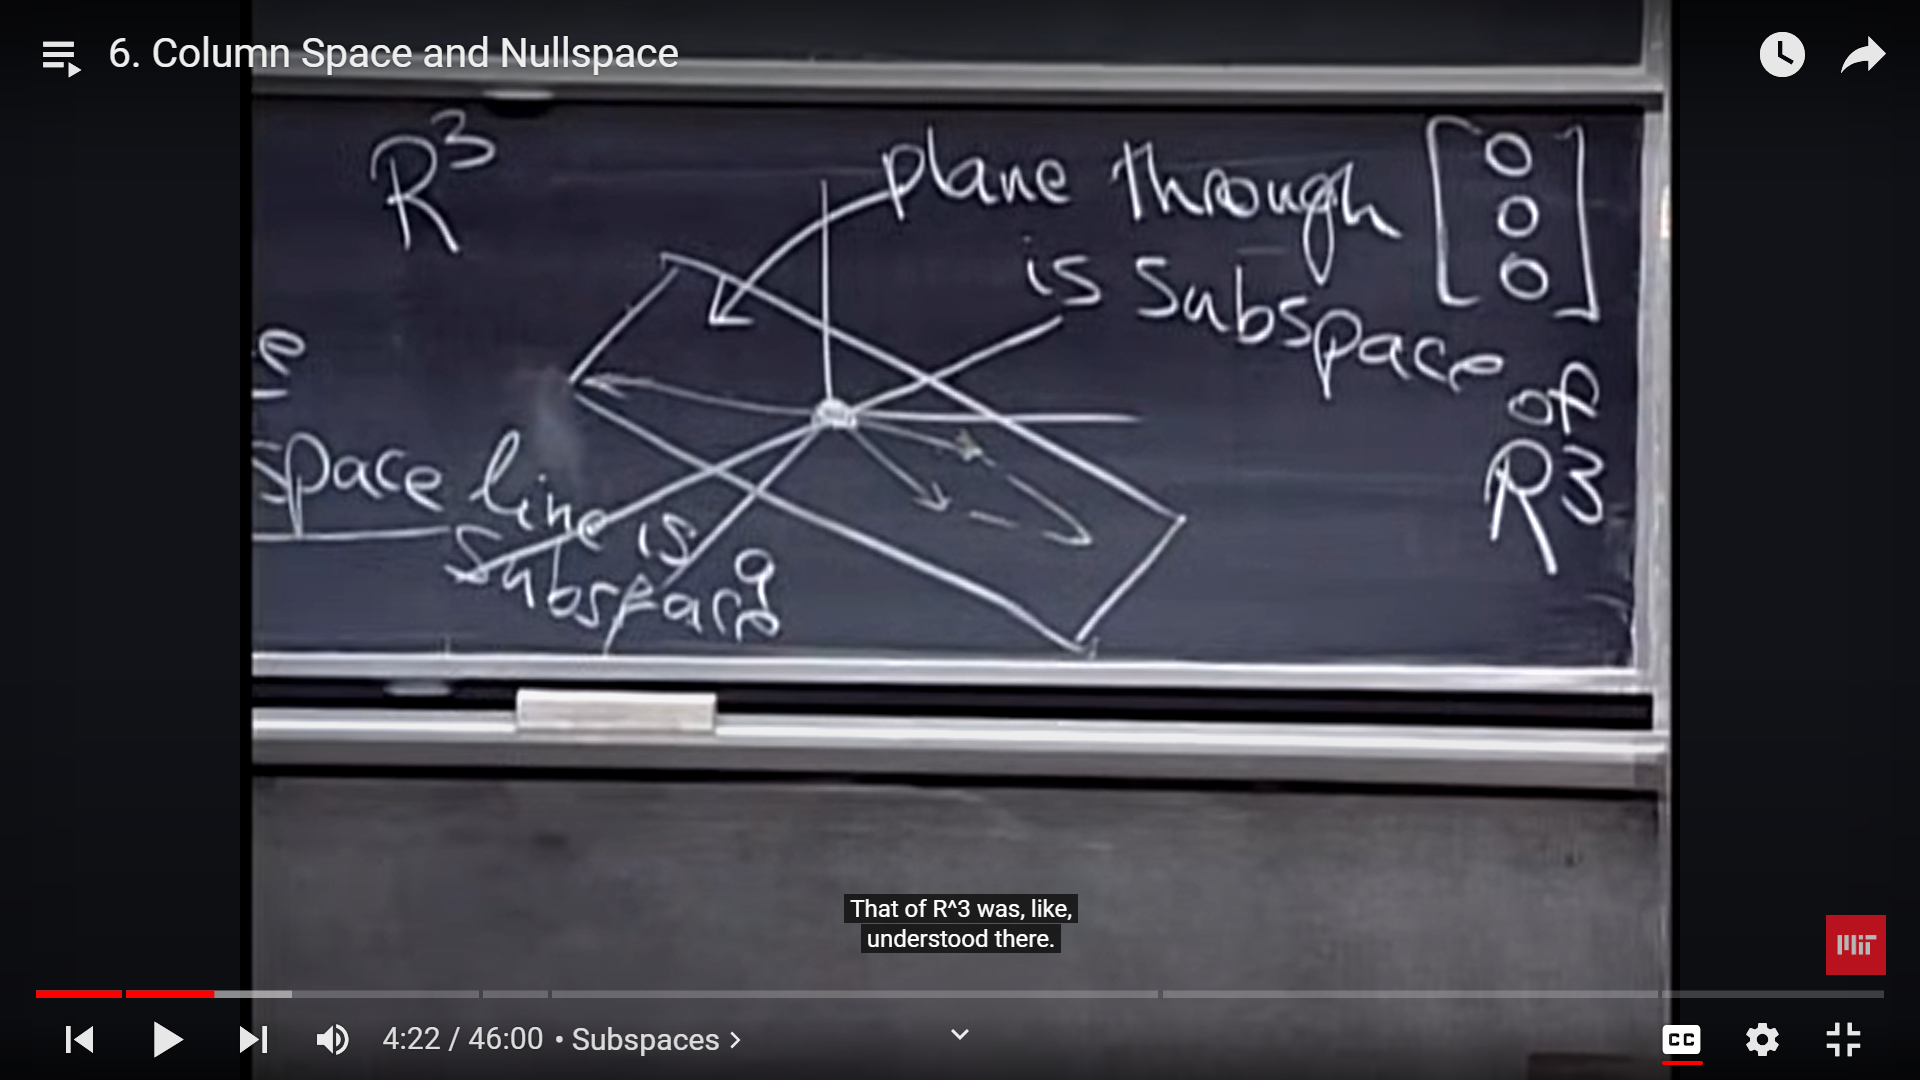 6. Column Space and Nullspace
R³
plane through
[0
0
0]
is subspace
of
R³
space
line is a
subspace
That of R^3 was, like,
understood there.
MIT
4:22 / 46:00 • Subspaces >
CC